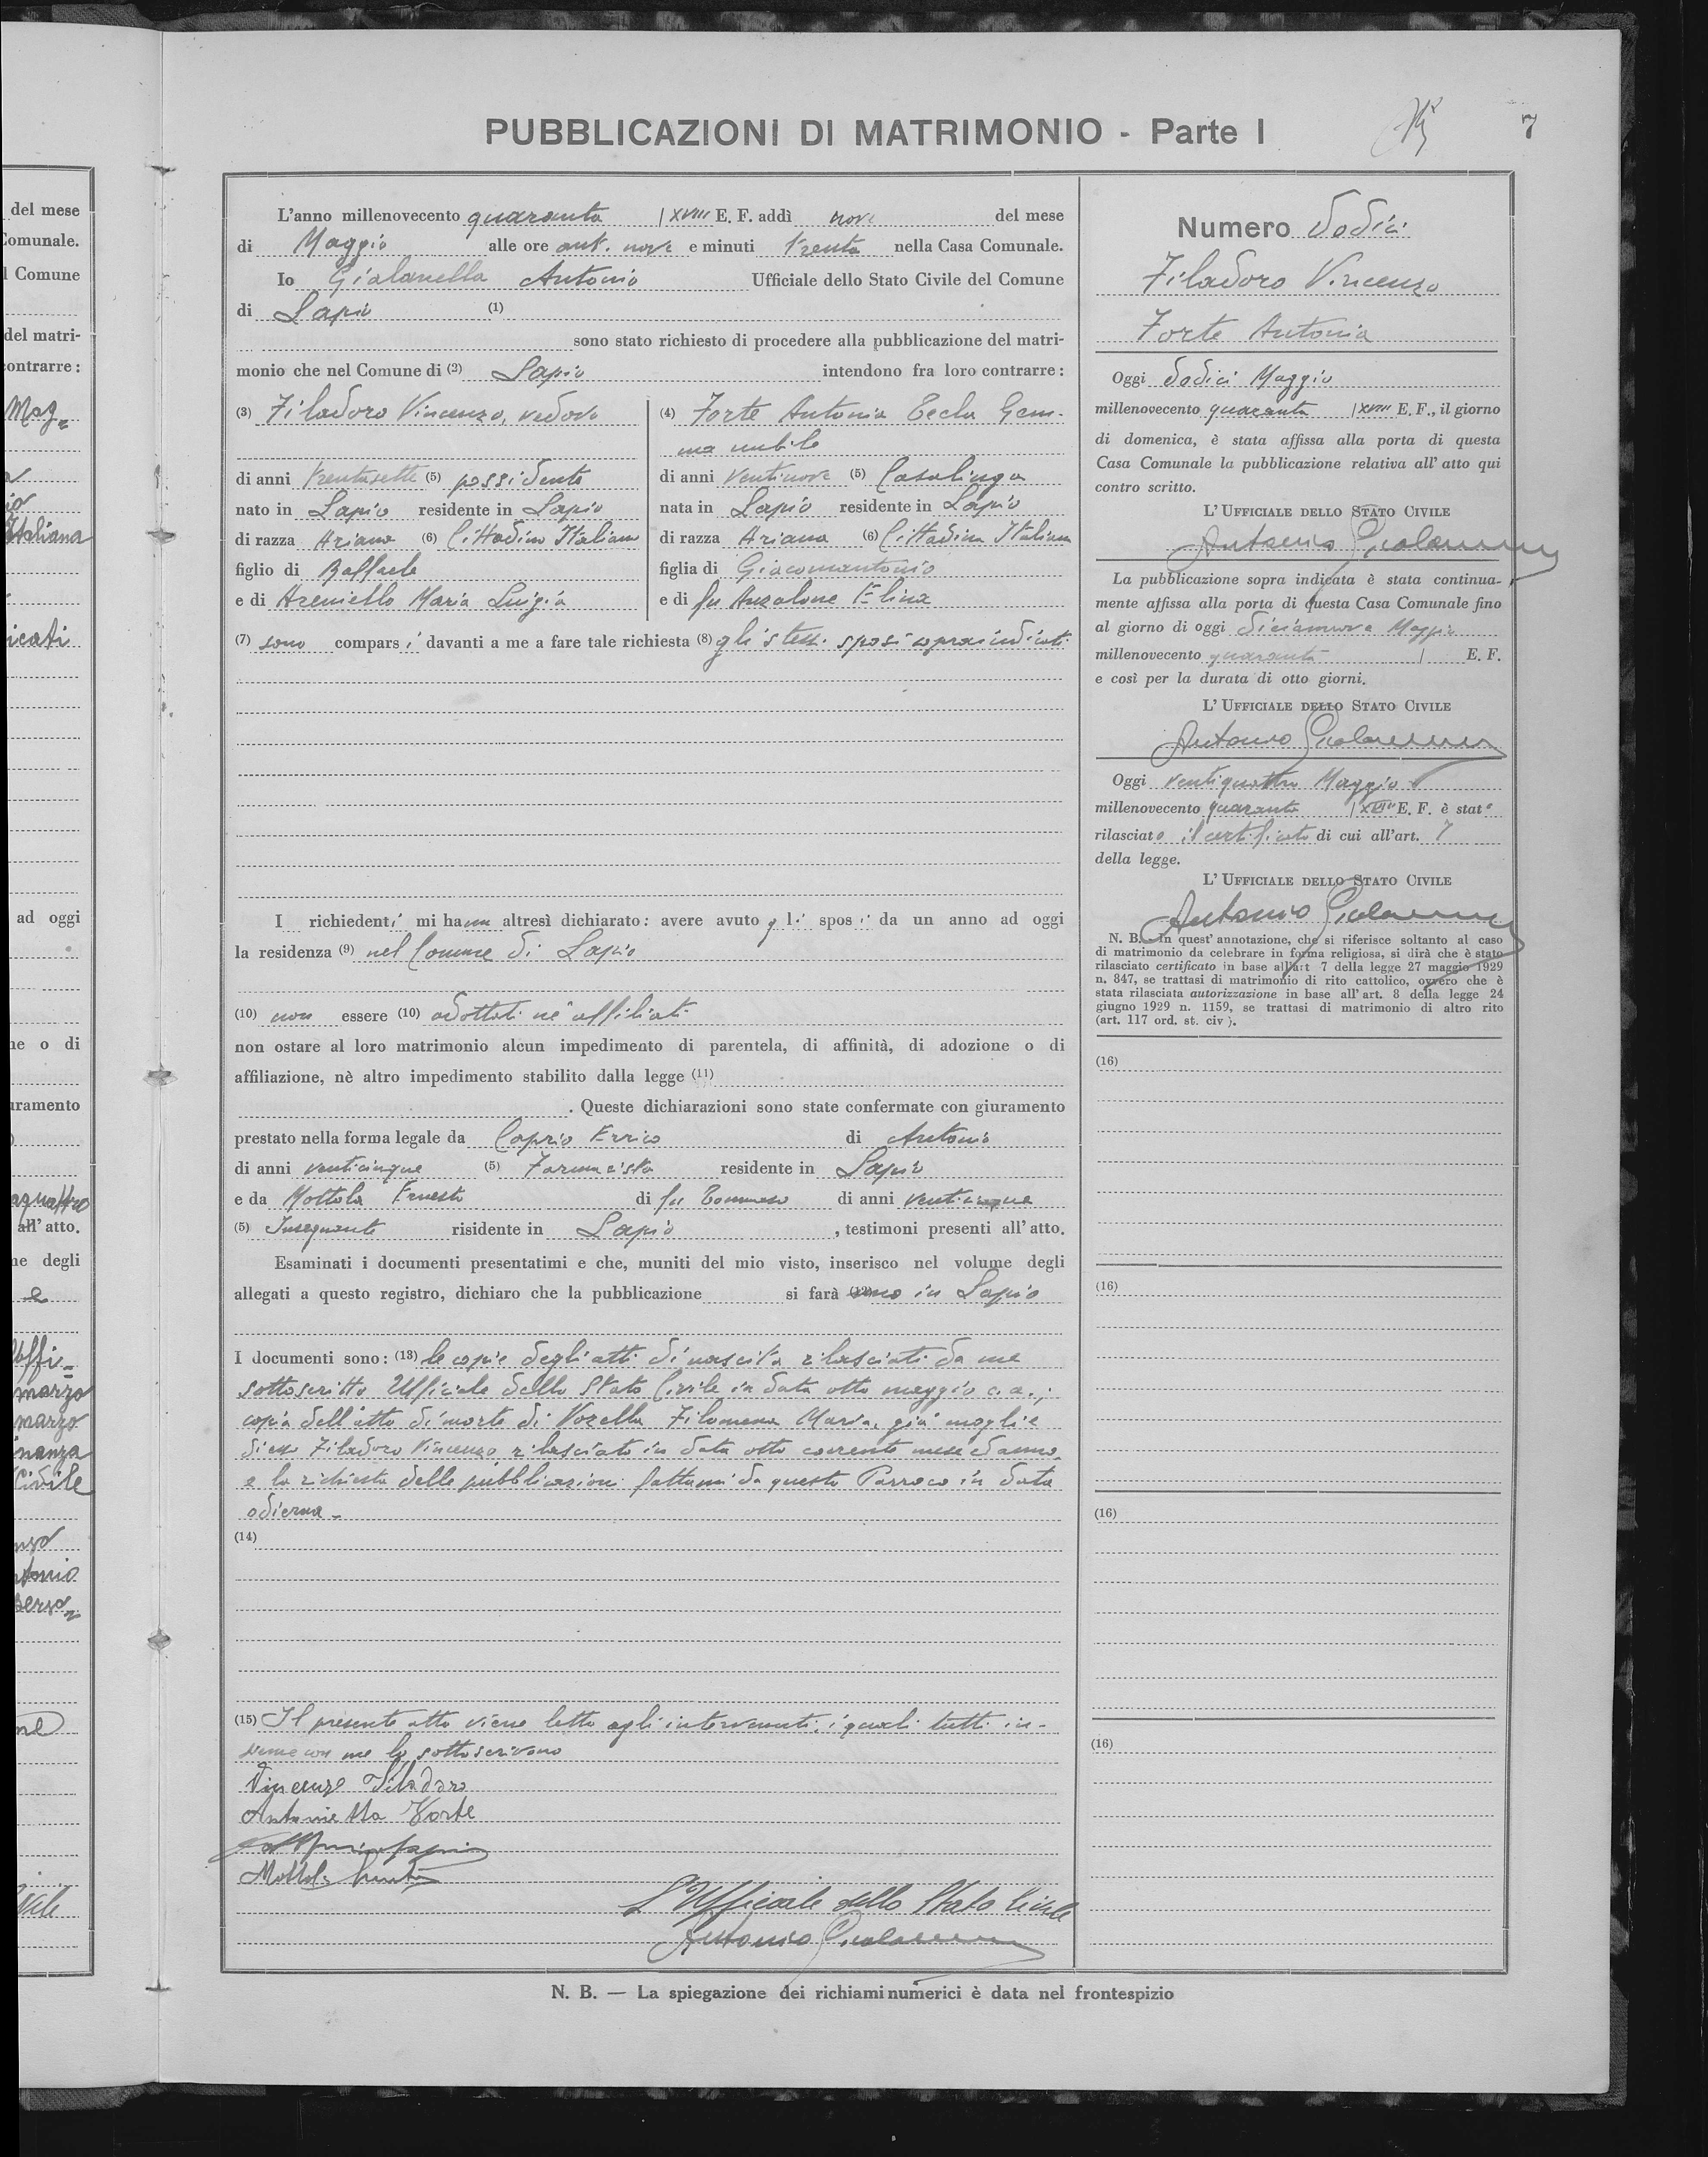 del mese
Comunale.
l Comune
del matri-
contrarre:
Mag.
Italiana
icati
ad oggi
ne o di
uramento
aquattro
all' atto.
ne degli
e
Uffi-
marzo
marzo
nanza
Civile
nzo
ntonio
PUBBLICAZIONI DI MATRIMONIO - Parte I
7
L'anno millenovecento quaranta / XVIII E. F. addì nove del mese
di Maggio alle ore ant. nove e minuti trenta nella Casa Comunale.
Io Gialanella Antonio Ufficiale dello Stato Civile del Comune
di Lapio (1)
sono stato richiesto di procedere alla pubblicazione del matri-
monio che nel Comune di (2) Lapio intendono fra loro contrarre:
(3) Filadoro Vincenzo, vedovo
di anni trentasette (5) possidente
nato in Lapio residente in Lapio
di razza Ariana (6) Cittadino Italiano
figlio di Raffaele
e di Areniello Maria Luigia
(4) Forte Antonia Tecla Gem-
ma nubile
di anni ventinove (5) Casalinga
nata in Lapio residente in Lapio
di razza Ariana (6) Cittadina Italiana
figlia di Giacomantonio
e di fu Anzalone Elina
(7) sono comparsi davanti a me a fare tale richiesta (8) gli stessi sposi sopraindicati
I richiedenti mi hanno altresì dichiarato: avere avuto gli sposi da un anno ad oggi
la residenza (9) nel Comune di Lapio
(10) non essere (10) adottati nè affiliati
non ostare al loro matrimonio alcun impedimento di parentela, di affinità, di adozione o di
affiliazione, nè altro impedimento stabilito dalla legge (11)
. Queste dichiarazioni sono state confermate con giuramento
prestato nella forma legale da Caprio Errico di Antonio
di anni venticinque (5) Farmacista residente in Lapio
e da Mottola Ernesto di fu Tommaso di anni venticinque
(5) Insegnante risidente in Lapio , testimoni presenti all' atto.
Esaminati i documenti presentatimi e che, muniti del mio visto, inserisco nel volume degli
allegati a questo registro, dichiaro che la pubblicazione si farà (12) in Lapio
I documenti sono: (13) le copie degli atti di nascita rilasciati da me
sottoscritto Ufficiale dello Stato Civile in data otto maggio c.a.;
copia dell'atto di morte di Vozella Filomena Maria, già moglie
di esso Filadoro Vincenzo, rilasciato in data otto corrente mese ed anno,
e la richiesta delle pubblicazioni fattami da questo Parroco in data
odierna.
(14)
(15) Il presente atto viene letto agli intervenuti, i quali tutti in-
sieme con me lo sottoscrivono
Vincenzo Filadoro
Antonietta Forte
Mottola Ernesto
L'Ufficiale dello Stato Civile
Antonio Gialanella
Numero dodici
Filadoro Vincenzo
Forte Antonia
Oggi dodici Maggio
millenovecento quaranta / XVIII E. F., il giorno
di domenica, è stata affissa alla porta di questa
Casa Comunale la pubblicazione relativa all' atto qui
contro scritto.
L' UFFICIALE DELLO STATO CIVILE
Antonio Gialanella
La pubblicazione sopra indicata è stata continua-
mente affissa alla porta di questa Casa Comunale fino
al giorno di oggi diciannove Maggio
millenovecento quaranta / E. F.
e così per la durata di otto giorni.
L' UFFICIALE DELLO STATO CIVILE
Antonio Gialanella
Oggi ventiquattro Maggio
millenovecento quaranta / XVIII E. F. è stato
rilasciato il certificato di cui all'art. 7
della legge.
L' UFFICIALE DELLO STATO CIVILE
Antonio Gialanella
N. B. In quest' annotazione, che si riferisce soltanto al caso
di matrimonio da celebrare in forma religiosa, si dirà che è stato
rilasciato certificato in base all'art 7 della legge 27 maggio 1929
n. 847, se trattasi di matrimonio di rito cattolico, ovvero che è
stata rilasciata autorizzazione in base all' art. 8 della legge 24
giugno 1929 n. 1159, se trattasi di matrimonio di altro rito
(art. 117 ord. st. civ ).
(16)
(16)
(16)
(16)
N. B. — La spiegazione dei richiami numerici è data nel frontespizio